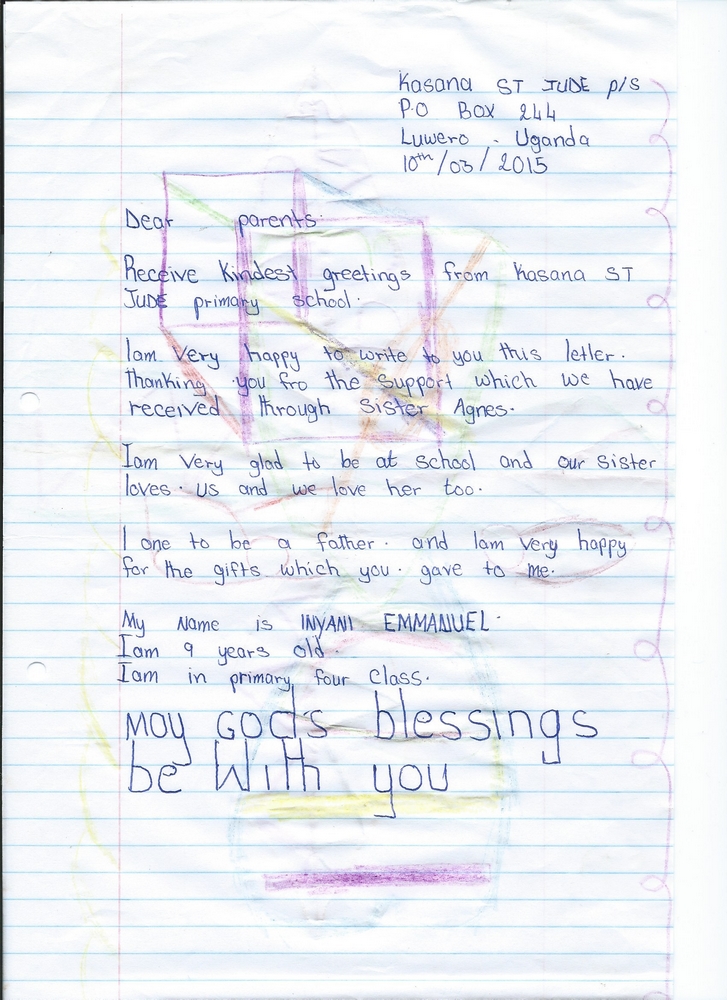 Kasana ST JUDE p/s
P.O Box 244
Luwero - Uganda
10th/03/2015
Dear parents.
Receive Kindest greetings from Kasana ST
JUDE primary school.
Iam Very happy to write to you this letler.
thanking you fro the support which we have
received through Sister Agnes.
Iam Very glad to be at school and our Sister
loves. us and we love her too.
I one to be a father. and Iam very happy
for the gifts which you. gave to me.
My Name is INYANI EMMANUEL.
Iam 9 years old.
Iam in primary four Class.
May God's blessings
be With you